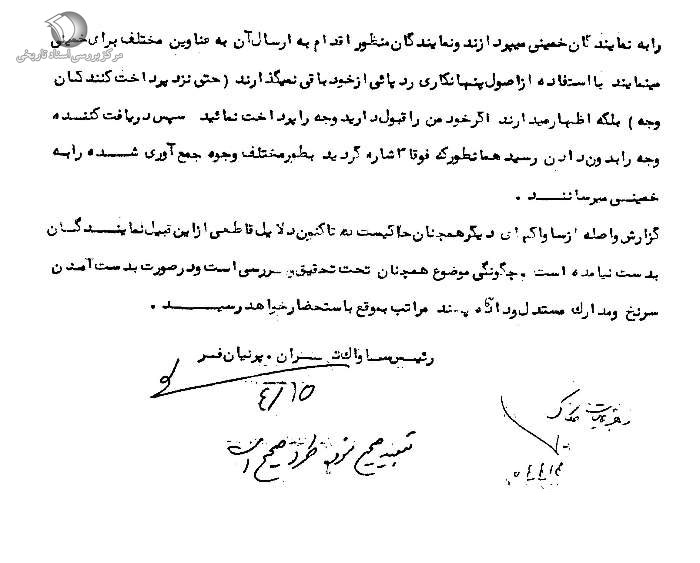 مرکز بررسی اسناد تاریخی
را به نمایندگان خمینی میپردازند و نمایندگان منظور اقدام به ارسال آن به عناوین مختلف برای خمینی
مینمایند با استفاده از اصول پنهانکاری ردپائی از خود باقی نمیگذارند (حتی نزد پرداخت کنندگان
وجه) بلکه اظهار میدارند اگر خود من را قبول دارید وجه را پرداخت نمائید سپس دریافت کننده
وجه را بدون دادن رسید همانطور که فوقا اشاره گردید بطور مختلف وجوه جمع آوری شده را به
خمینی میرسانند.
گزارش واصله از ساواکهای دیگر همچنان حاکیست که تاکنون دلایل قاطعی از این قبیل نمایندگان
بدست نیامده است چگونگی موضوع همچنان تحت تحقیق و بررسی است و در صورت بدست آمدن
سرنخ و مدارك مستدل و دادگاه پسند مراتب بموقع باستحضار خواهد رسید.
رئیس ساواك تهران. پرنیان فر
۴/۱۵